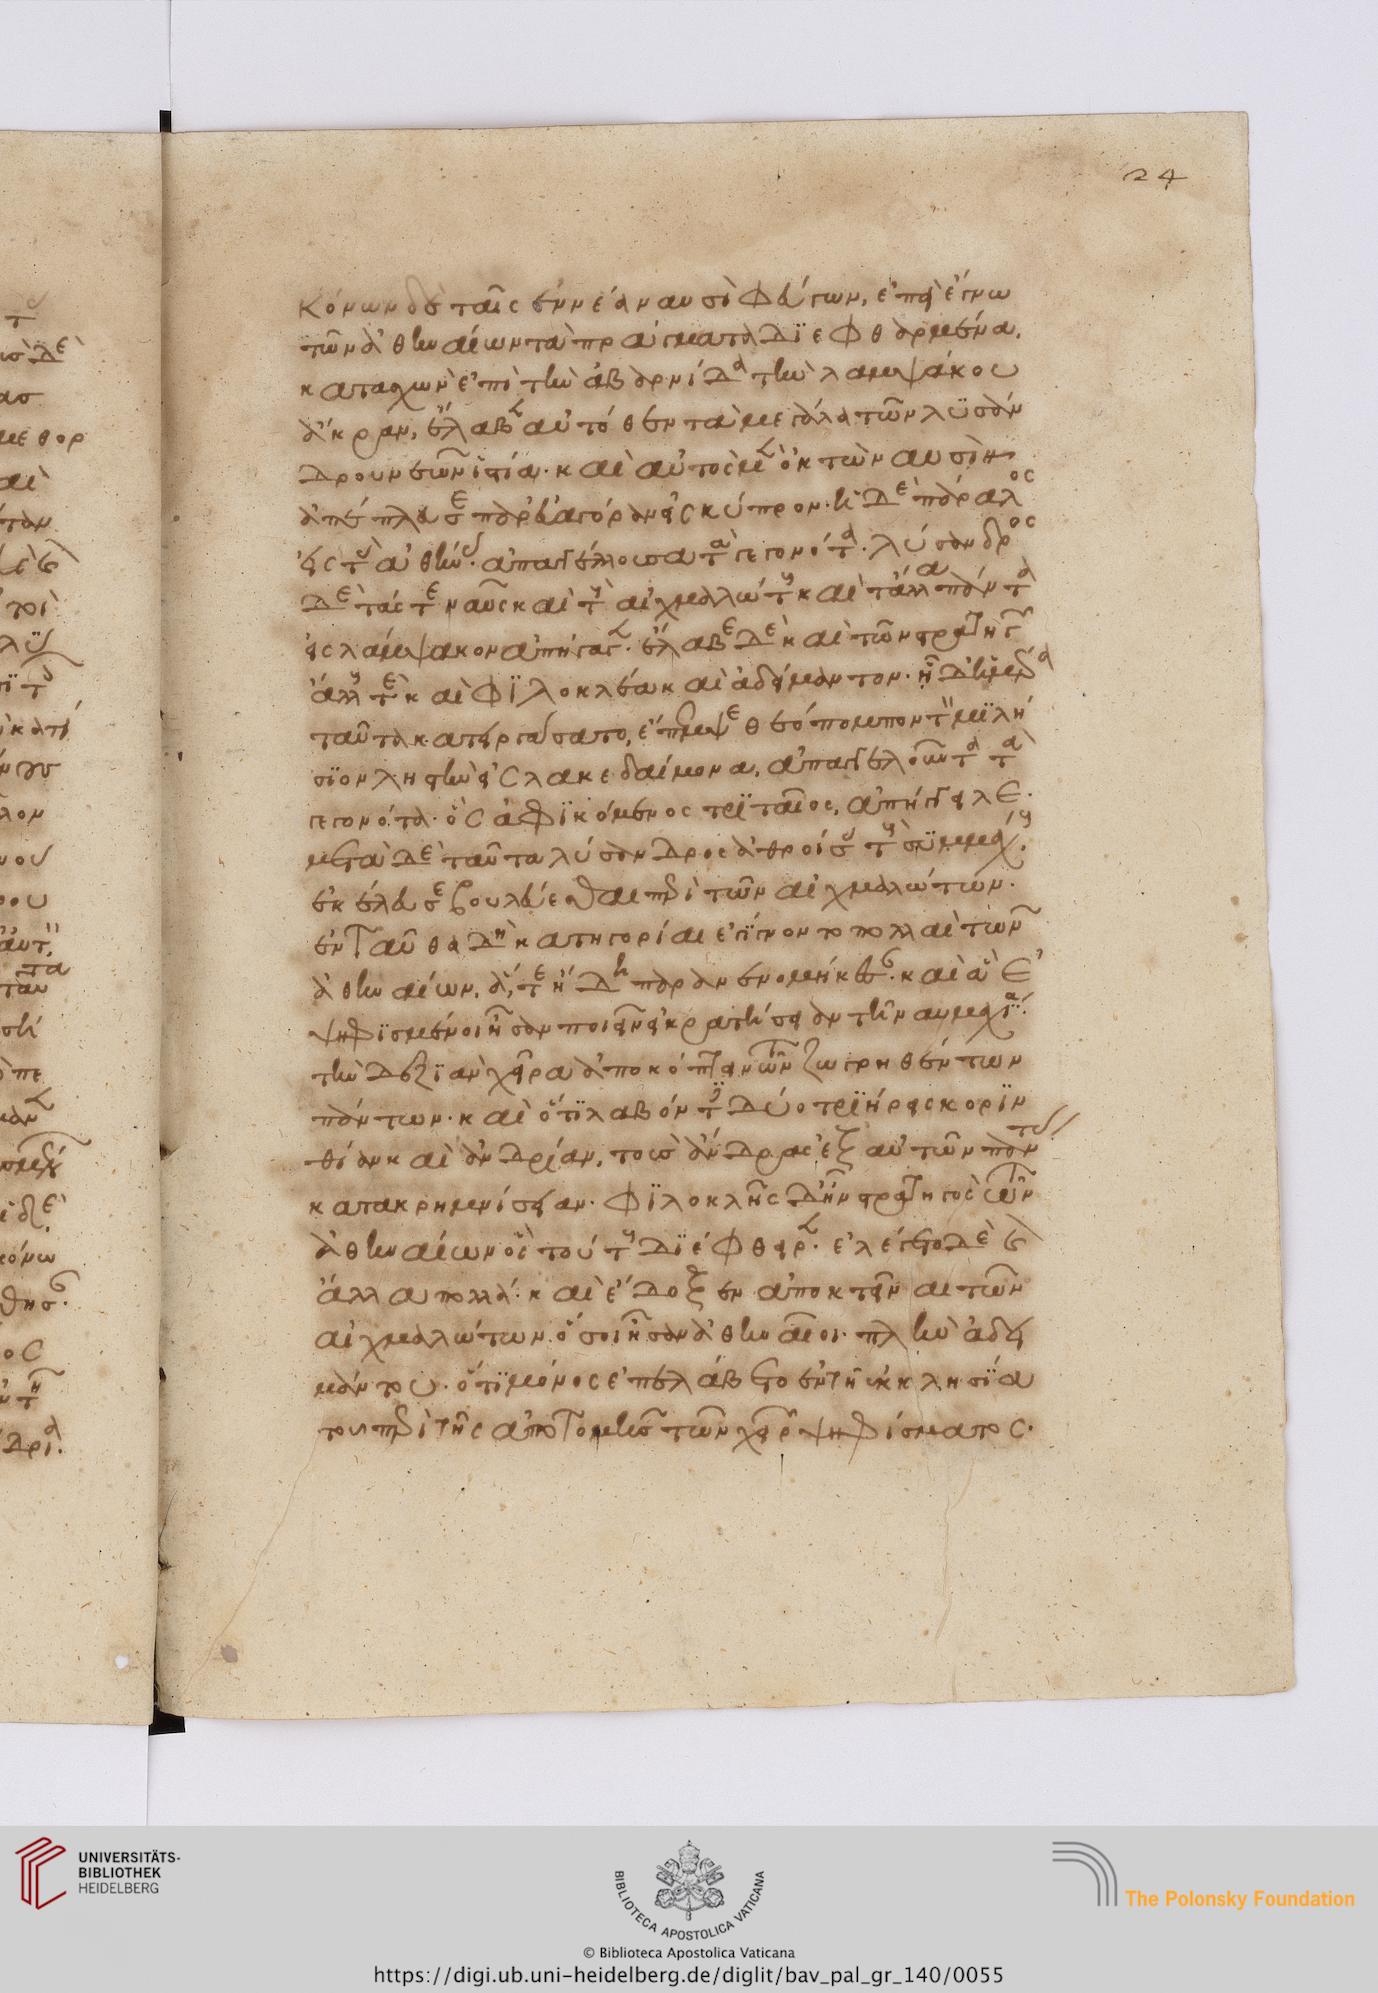 Κόνων δὲ ταῖς ἐννέα ναυσὶ φεύγων, ἐπεὶ ἔγνω
τῶν ἀθηναίων τὰ πράγματα διεφθαρμένα,
κατασχὼν ἐπὶ τὴν ἀβαρνίδα τὴν λαμψάκου
ἄκραν, ἔλαβεν αὐτόθεν τὰ μεγάλα τῶν λυσάν
δρου νεῶν ἱστία· καὶ αὐτὸς μὲν ὀκτὼ ναυσὶν
ἀπέπλευσε παρ' εὐαγόραν εἰς κύπρον· ἡ δὲ πάραλος
εἰς τὰς ἀθήνας· ἀπαγγέλλουσα τὰ γεγονότα· λύσανδρος
δὲ τάς τε ναῦς καὶ τοὺς αἰχμαλώτους καὶ τἄλλα πάντα
εἰς λάμψακον ἀπήγαγεν· ἔλαβε δὲ καὶ τῶν στρατηγῶν
ἄλλους τε καὶ φιλοκλέα καὶ ἀδείμαντον· ᾗ δ' ἡμέρα
ταῦτα κατειργάσατο, ἔπεμψε θεόπομπον τὸν μιλή
σιον ληστὴν εἰς λακεδαίμονα, ἀπαγγελοῦντα τὰ
γεγονότα· ὃς ἀφικόμενος τριταῖος, ἀπήγγειλε·
μετὰ δὲ ταῦτα λύσανδρος ἀθροίσας τοὺς συμμάχους
ἐκέλευσε βουλεύεσθαι περὶ τῶν αἰχμαλώτων·
ἐνταῦθα δὴ κατηγορίαι ἐγίγνοντο πολλαὶ τῶν
ἀθηναίων, ἅ τε ἤδη παρανενομήκεσαν· καὶ ἃ ἐ
ψηφισμένοι ἦσαν ποιεῖν εἰ κρατήσειαν τῆ ναυμαχία·
τὴν δεξιὰν χεῖρα ἀποκόπτειν τῶν ζωγρηθέντων
πάντων· καὶ ὅτι λαβόντες δύο τριήρεις κοριν
θίαν καὶ ἀνδρίαν, τοὺς ἄνδρας ἐξ αὐτῶν πάντας
κατακρημνίσειαν· φιλοκλῆς δ' ἦν στρατηγὸς τῶν
ἀθηναίων ὃς τούτους διέφθειρεν· ἐλέγετο δὲ καὶ
ἄλλα πολλά· καὶ ἔδοξεν ἀποκτεῖναι τῶν
αἰχμαλώτων ὅσοι ἦσαν ἀθηναῖοι· πλὴν ἀδει
μάντου· ὅτι μόνος ἐπελάβετο ἐν τῆ ἐκκλησία
τοῦ περὶ τῆς ἀποτομῆς τῶν χειρῶν ψηφίσματος·
24
UNIVERSITÄTS-
BIBLIOTHEK
HEIDELBERG
BIBLIOTECA APOSTOLICA VATICANA
The Polonsky Foundation
© Biblioteca Apostolica Vaticana
https://digi.ub.uni-heidelberg.de/diglit/bav_pal_gr_140/0055